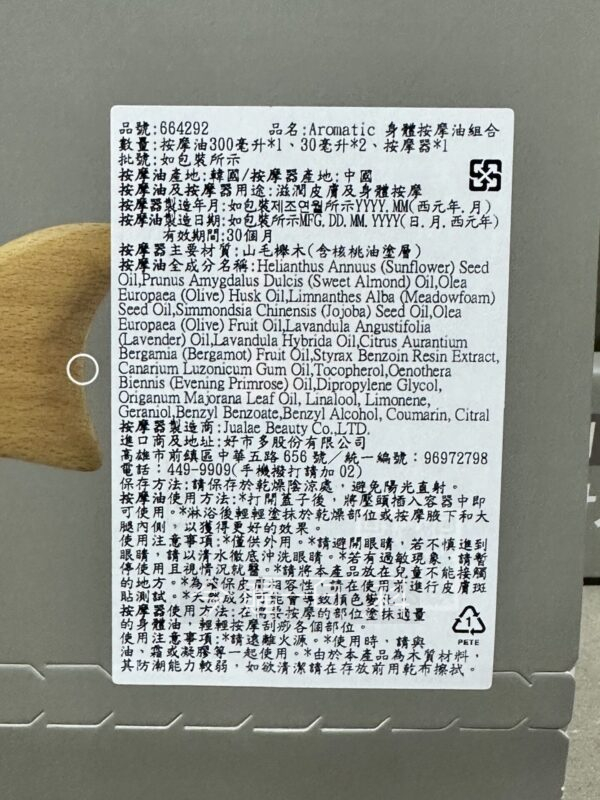 品號:664292 品名:Aromatic 身體按摩油組合
數量:按摩油300毫升*1、30毫升*2、按摩器*1
批號:如包裝所示
按摩油產地:韓國/按摩器產地:中國
按摩油及按摩器用途:滋潤皮膚及身體按摩
按摩器製造年月:如包裝제조연월所示YYYY.MM(西元年.月)
按摩油製造日期:如包裝所示MFG,DD.MM.YYYY(日.月.西元年)
有效期間:30個月
按摩器主要材質:山毛櫸木(含核桃油塗層)
按摩油全成分名稱:Helianthus Annuus (Sunflower) Seed
Oil,Prunus Amygdalus Dulcis (Sweet Almond) Oil,Olea
Europaea (Olive) Husk Oil,Limnanthes Alba (Meadowfoam)
Seed Oil,Simmondsia Chinensis (Jojoba) Seed Oil,Olea
Europaea (Olive) Fruit Oil,Lavandula Angustifolia
(Lavender) Oil,Lavandula Hybrida Oil,Citrus Aurantium
Bergamia (Bergamot) Fruit Oil,Styrax Benzoin Resin Extract,
Canarium Luzonicum Gum Oil,Tocopherol,Oenothera
Biennis (Evening Primrose) Oil,Dipropylene Glycol,
Origanum Majorana Leaf Oil, Linalool, Limonene,
Geraniol,Benzyl Benzoate,Benzyl Alcohol, Coumarin, Citral
按摩器製造商:Jualae Beauty Co.,LTD.
進口商及地址:好市多股份有限公司
高雄市前鎮區中華五路 656 號/統一編號:96972798
電話:449-9909(手機撥打請加 02)
保存方法:請保存於乾燥陰涼處,避免陽光直射。
按摩油使用方法:*打開蓋子後,將壓頭插入容器中即
可使用。*淋浴後輕輕塗抹於乾燥部位或按摩腋下和大
腿內側,以獲得更好的效果。
使用注意事項:*僅供外用。*請避開眼睛,若不慎進到
眼睛,請以清水徹底沖洗眼睛。*若有過敏現象,請暫
停使用且視情況就醫。*請將本產品放在兒童不能接觸
的地方。*為確保皮膚相容性,請在使用前進行皮膚斑
貼測試。*天然成分可能會導致顏色變化。
按摩器使用方法:在需要按摩的部位塗抹適量
的身體油,輕輕按摩刮痧各個部位。
使用注意事項:*請遠離火源。*使用時,請與
油、霜或凝膠等一起使用。*由於本產品為木質材料,
其防潮能力較弱,如欲清潔請在存放前用乾布擦拭。
1
PETE